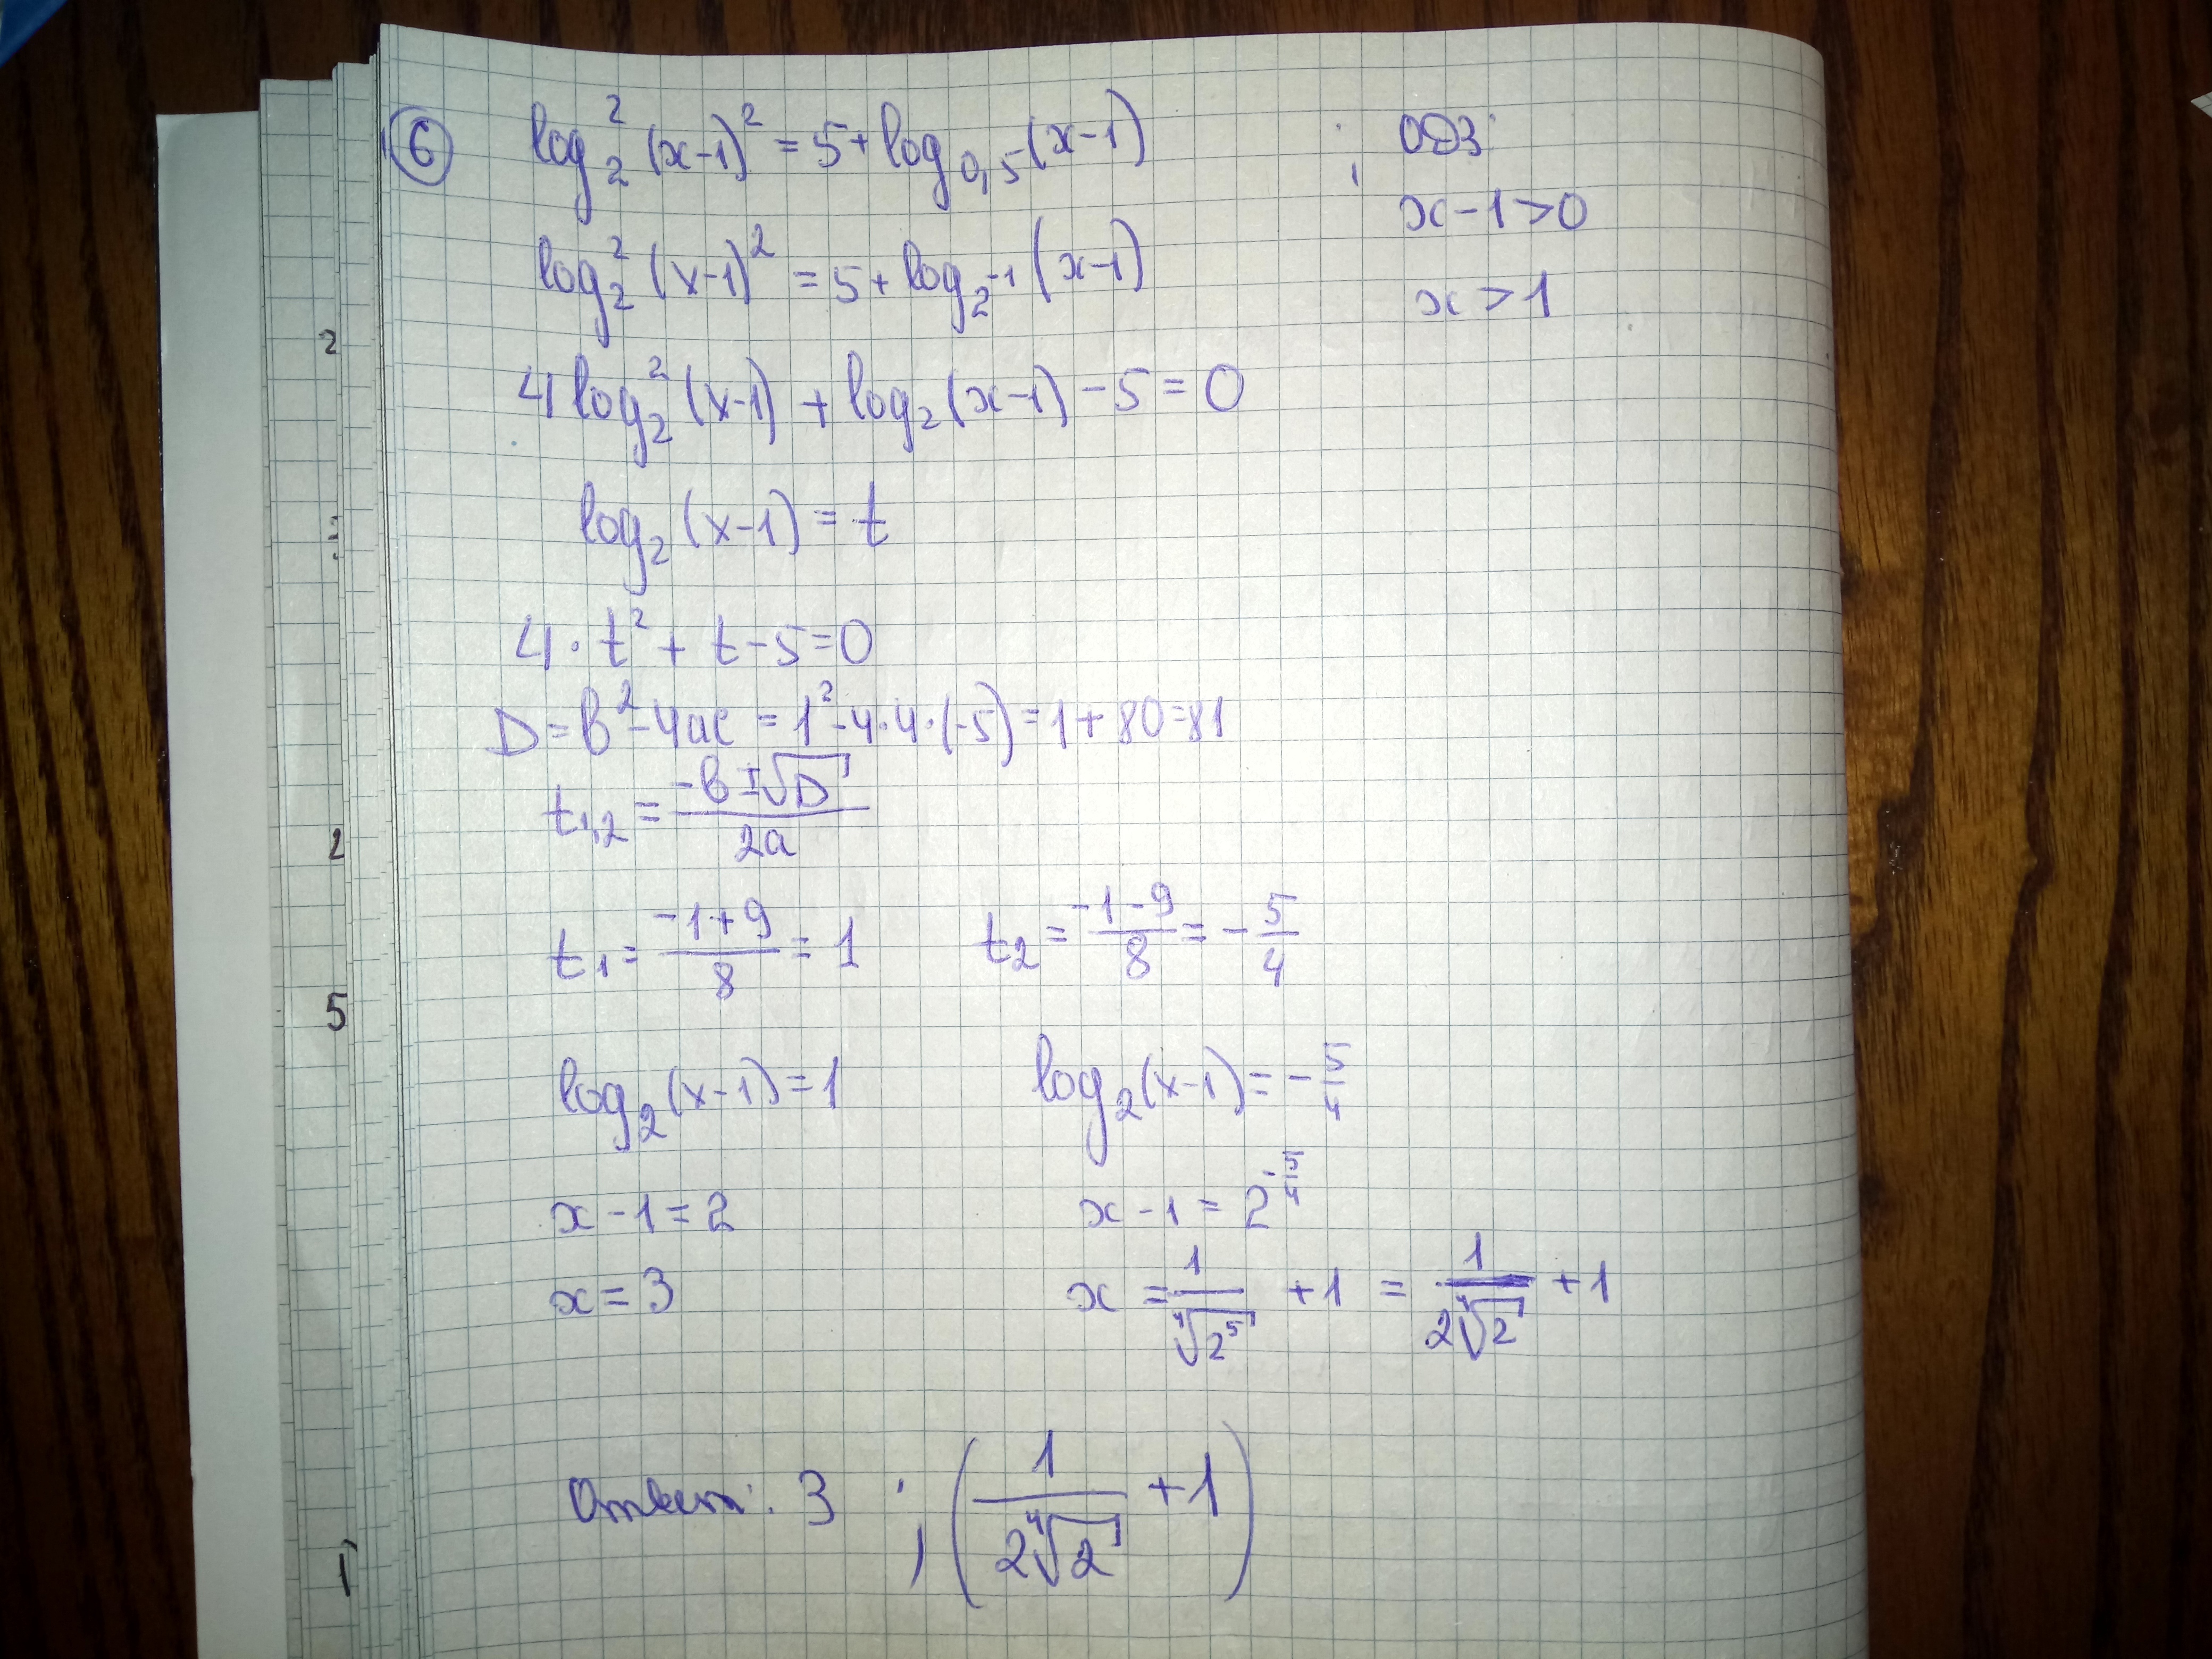 ⑥ log₂²(x-1)² = 5 + log₀,₅(x-1) ; ОДЗ:
x-1>0
x>1
log₂²(x-1)² = 5 + log₂⁻¹(x-1)
4 log₂²(x-1) + log₂(x-1) - 5 = 0
log₂(x-1) = t
4·t² + t - 5 = 0
D = b² - 4ac = 1² - 4·4·(-5) = 1 + 80 = 81
t₁,₂ = (-b ± √D)/(2a)
t₁ = (-1+9)/8 = 1 t₂ = (-1-9)/8 = -5/4
log₂(x-1) = 1 log₂(x-1) = -5/4
x-1 = 2 x-1 = 2^(-5/4)
x = 3 x = 1/⁴√(2⁵) + 1 = 1/(2⁴√2) + 1
Ответ: 3 ; (1/(2⁴√2) + 1)
2
2
5
1